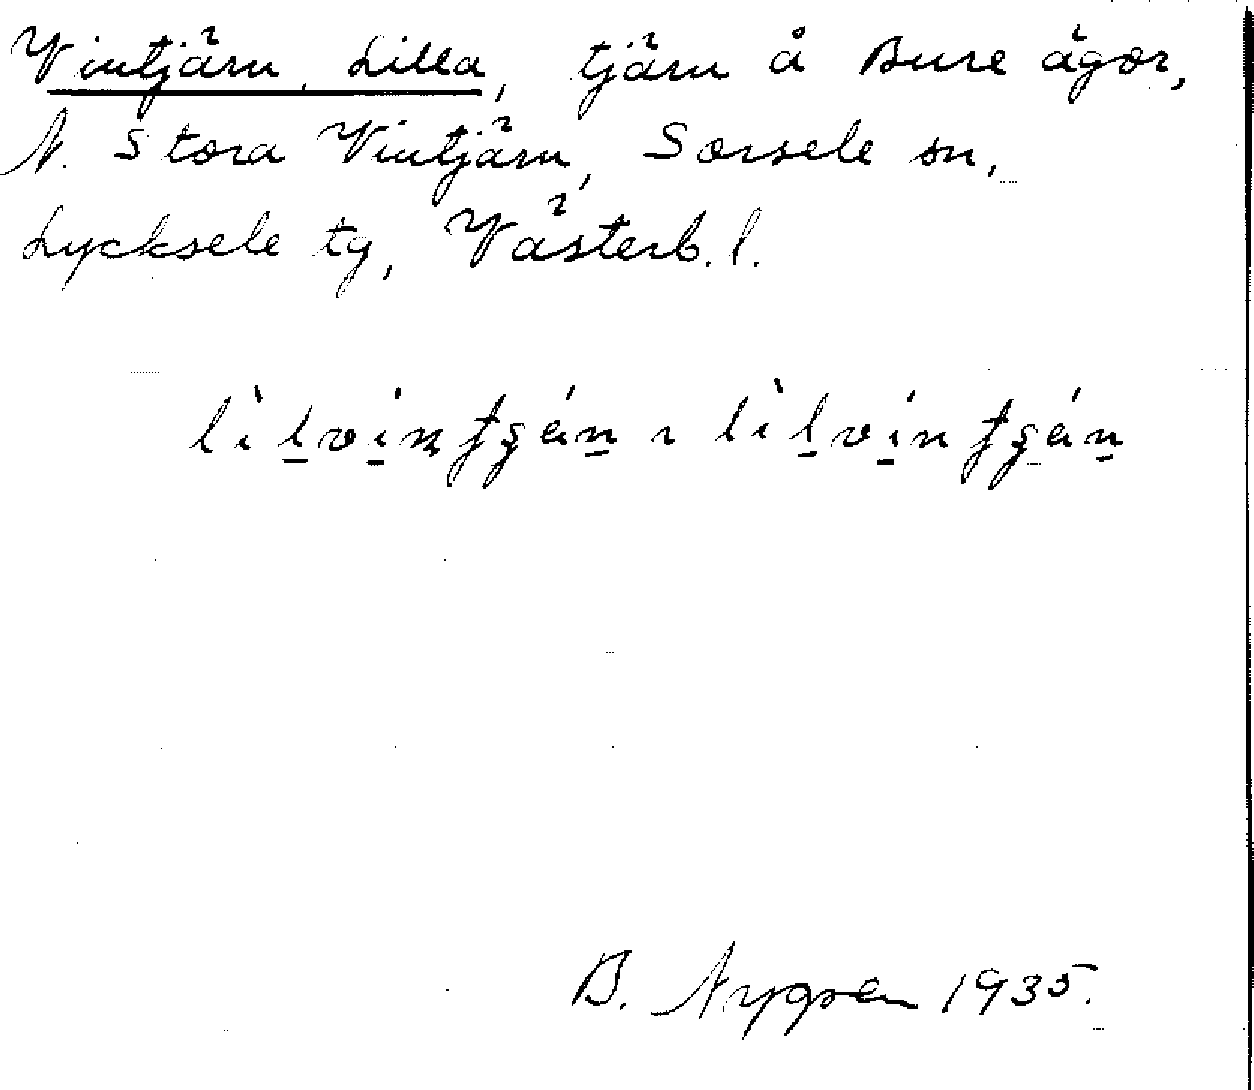 Vintjärn, Lilla, tjärn å Bure ägor,
N. Stora Vintjärn, Sorsele sn,
Lycksele tg, Västerb. l.
B. Nygren 1935.